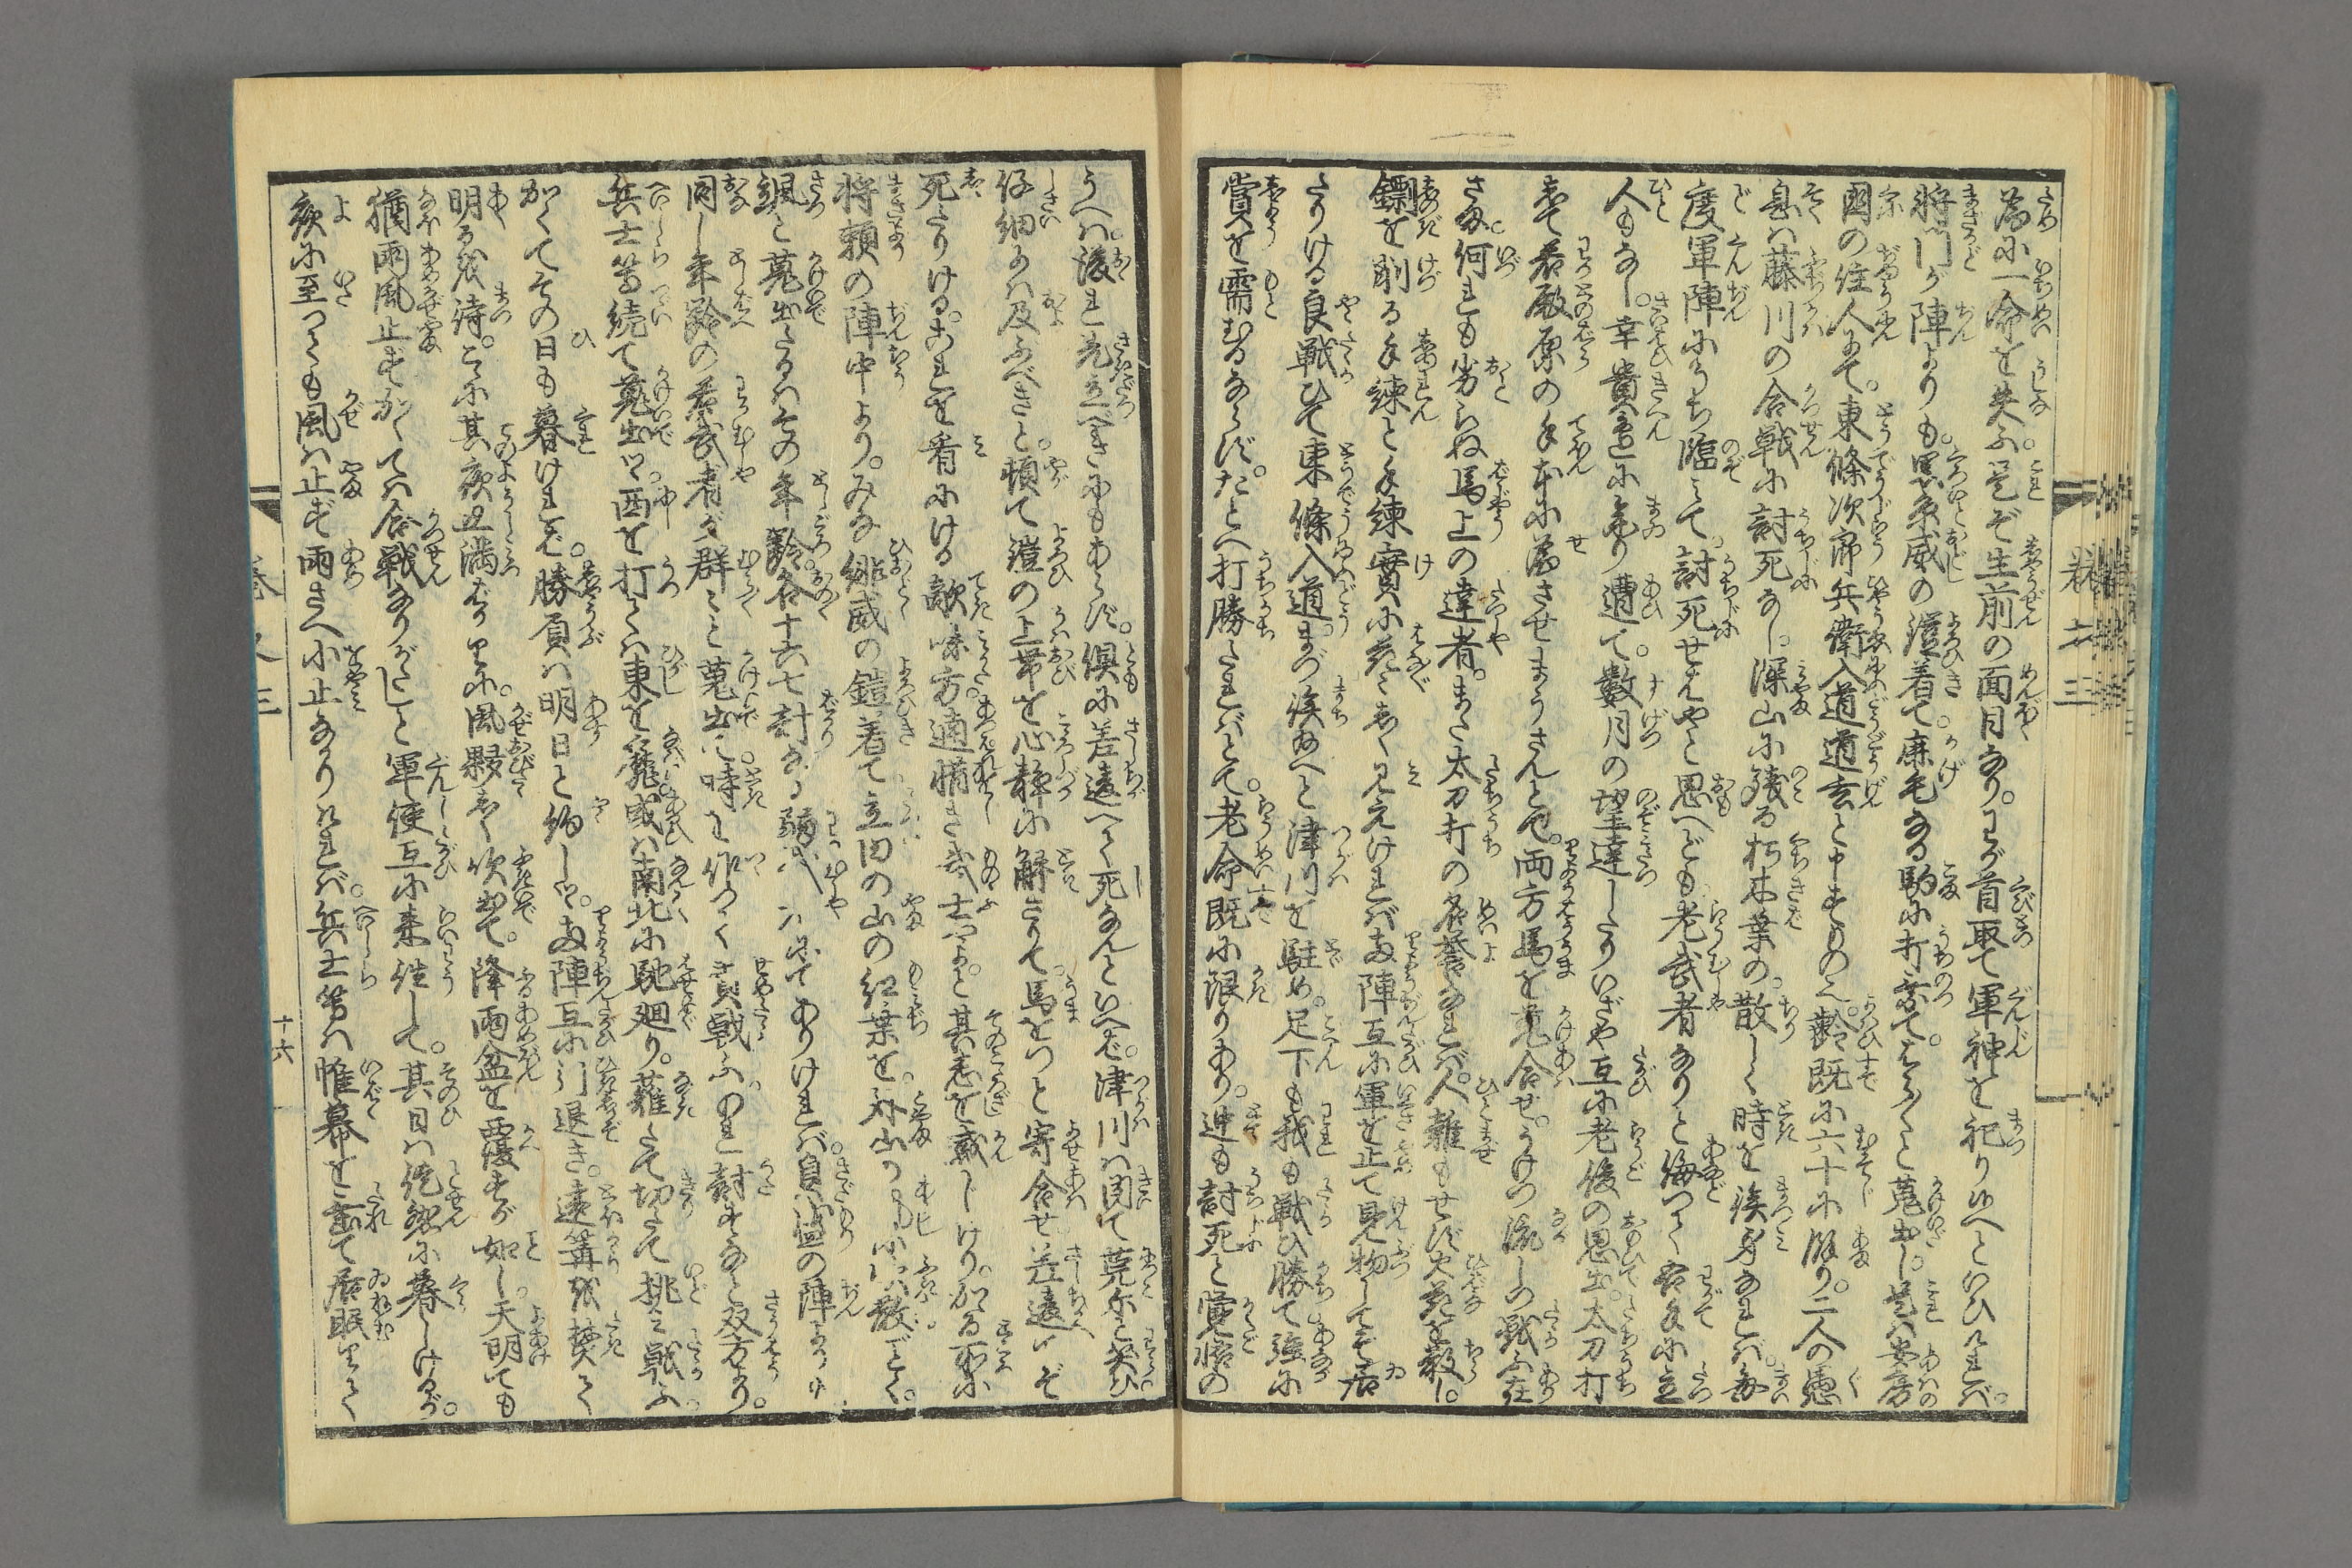 為に一命を失ふ。是ぞ生前の面目なり。わが首取て軍神を祀りゆへといひければ。
将門が陣よりも。黒糸威の鎧着て。鹿毛なる駒に打乗て。しづ〳〵と蒐出し。是は安房
国の住人にて。東條次郎兵衛入道道玄と申すもの也。齢既に六十に餘り。二人の愚
息は藤川の合戦に討死なし。深山に残る朽木葉の。散しく時を俟身なれば。毎
度軍陣にうち臨みて。討死せばやと思へども。老武者なりと侮つて名手に立
人もなし。幸貴辺に参り遭て。数月の望達したりいざや互に老後の思出。太刀打
して若殿原の手本に為させまうさんと。両方馬を蒐合せ。うけつ流しつ戦ふ在
さま。何れも劣らぬ馬上の達者。また太刀打の名誉なれば。人雑もせず火花を散し。
鏢を削る手練と手練実に花々しく見えければ両陣互に軍を止て見物してぞ居
たりける良戦ひて東條入道。まづ俟ゆへと津川を駐め。足下も我も戦ひ勝て強に
賞を需むるならず。たとへ打勝たればとて。老命既に限りあり。迚も討死と覚悟の
うへは。後れ先立べきにもあらず。倶に差違へて死なんといへば。津川は聞て莞尓と笑ひ。
仔細には及ぶべきと。頓て鎧の上帯を心静に解さりて。馬をはつと寄合せ差違ひぞ
死たりける。これを看にける敵味方。適惜き武士やと。其志を感じけり。かゝる所に
将頼の陣中より。みな緋威の鎧着て立田の山の紅葉を。
颯と蒐出たるはその年齢。各十六七計なる弱武者にてありければ。貞盛の陣より
同し年齢の若武者が群々と蒐出て。時を作つて責戦ふ。のれ討すなと双方より。
兵士等続て蒐出し。西を打ては東を靡。或は南北に馳廻り。薙たて切たて挑み戦ふ。
かくてその日も暮ければ。勝負は明日と約しつ。両陣互に引退き。遠篝火焚て
明るを待。こゝに其夜丑満ばかりに。風颯しく吹出て。降雨盆を覆すが如し。天明ても
猶雨風止ずかくては合戦なりがたしと軍使互に来往して。其日は徒然に暮しけるが。
夜に至つても風は止ず雨さへ小止なかりければ。兵士等は帷幕を垂て居眠りて
巻之三
十六